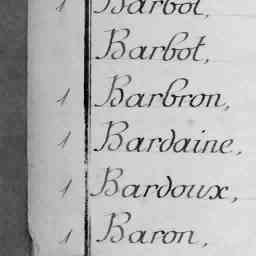 1 Barbot,
Barbot,
1 Barbron,
1 Bardaine,
1 Bardoux,
1 Baron,